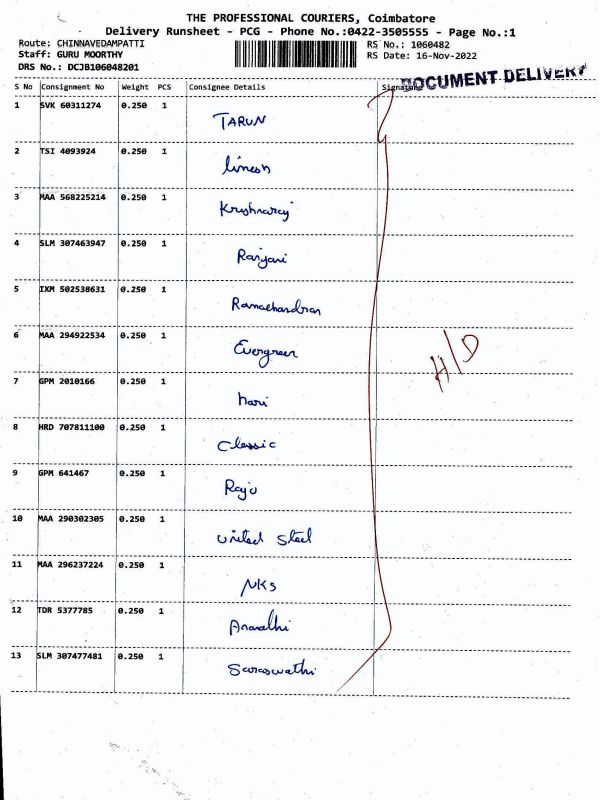 THE PROFESSIONAL COURIERS, Coimbatore
Delivery Runsheet - PCG - Phone No.:0422-3505555 - Page No.:1
Route: CHINNAVEDAMPATTI RS No.: 1060482
Staff: GURU MOORTHY RS Date: 16-Nov-2022
DRS No.: DCJB106048201
DOCUMENT DELIVERY
S No Consignment No Weight PCS Consignee Details Signature
1 SVK 60311274 0.250 1 TARUN
2 TSI 4093924 0.250 1 linesh
3 MAA 568225214 0.250 1 Krishnaraj
4 SLM 307463947 0.250 1 Ranjani
5 IXM 502538631 0.250 1 Ramachandran
6 MAA 294922534 0.250 1 Evergreen
H/D
7 GPM 2010166 0.250 1 hari
8 HRD 707811100 0.250 1 Classic
9 GPM 641467 0.250 1 Raju
10 MAA 290302305 0.250 1 United Steel
11 MAA 296237224 0.250 1 NKS
12 TDR 5377785 0.250 1
13 SLM 307477481 0.250 1 Saraswathi